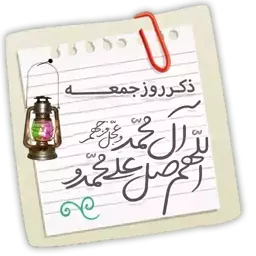 ذکر روز جمعه
اللّهم صل علی محمّد و
آل محمّد و عجّل فرجهم